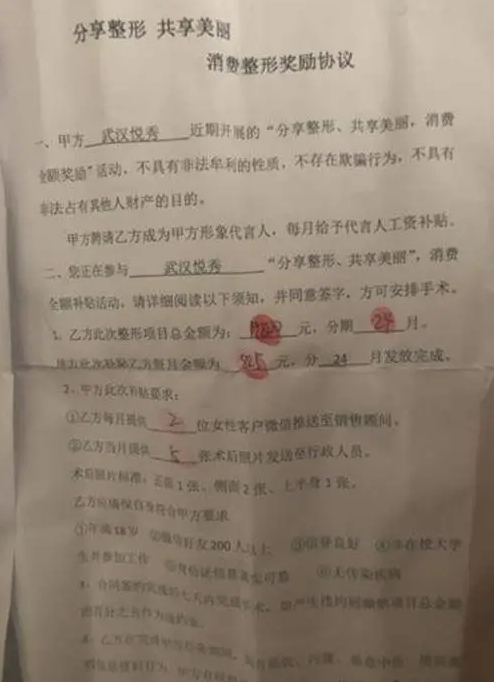 分享整形 共享美丽
消费整形奖励协议
一、甲方 武汉悦秀 近期开展的“分享整形、共享美丽，消费
全额奖励”活动，不具有非法牟利的性质，不存在欺骗行为，不具有
非法占有其他人财产的目的。
甲方聘请乙方成为甲方形象代言人，每月给予代言人工资补贴。
二、您正在参与 武汉悦秀 “分享整形、共享美丽”，消费
全额补贴活动，请详细阅读以下须知，并同意签字，方可安排手术。
1、乙方此次整形项目总金额为： 元，分期 24 月。
甲方此次补贴乙方每月金额为 825 元，分 24 月发放完成。
2、甲方此次补贴要求：
①乙方每月提供 2 位女性客户微信推送至销售顾问。
②乙方当月提供 5 张术后照片发送至行政人员。
术后照片标准：正面1张、侧面2张、上半身1张。
乙方应确保自身符合甲方要求
①年满18岁 ②微信好友200人以上 ③信誉良好 ④非在校大学
生并参加工作 ⑤身份证信息真实可靠 ⑥无传染疾病
3、合同签约完成的七天内完成手术，